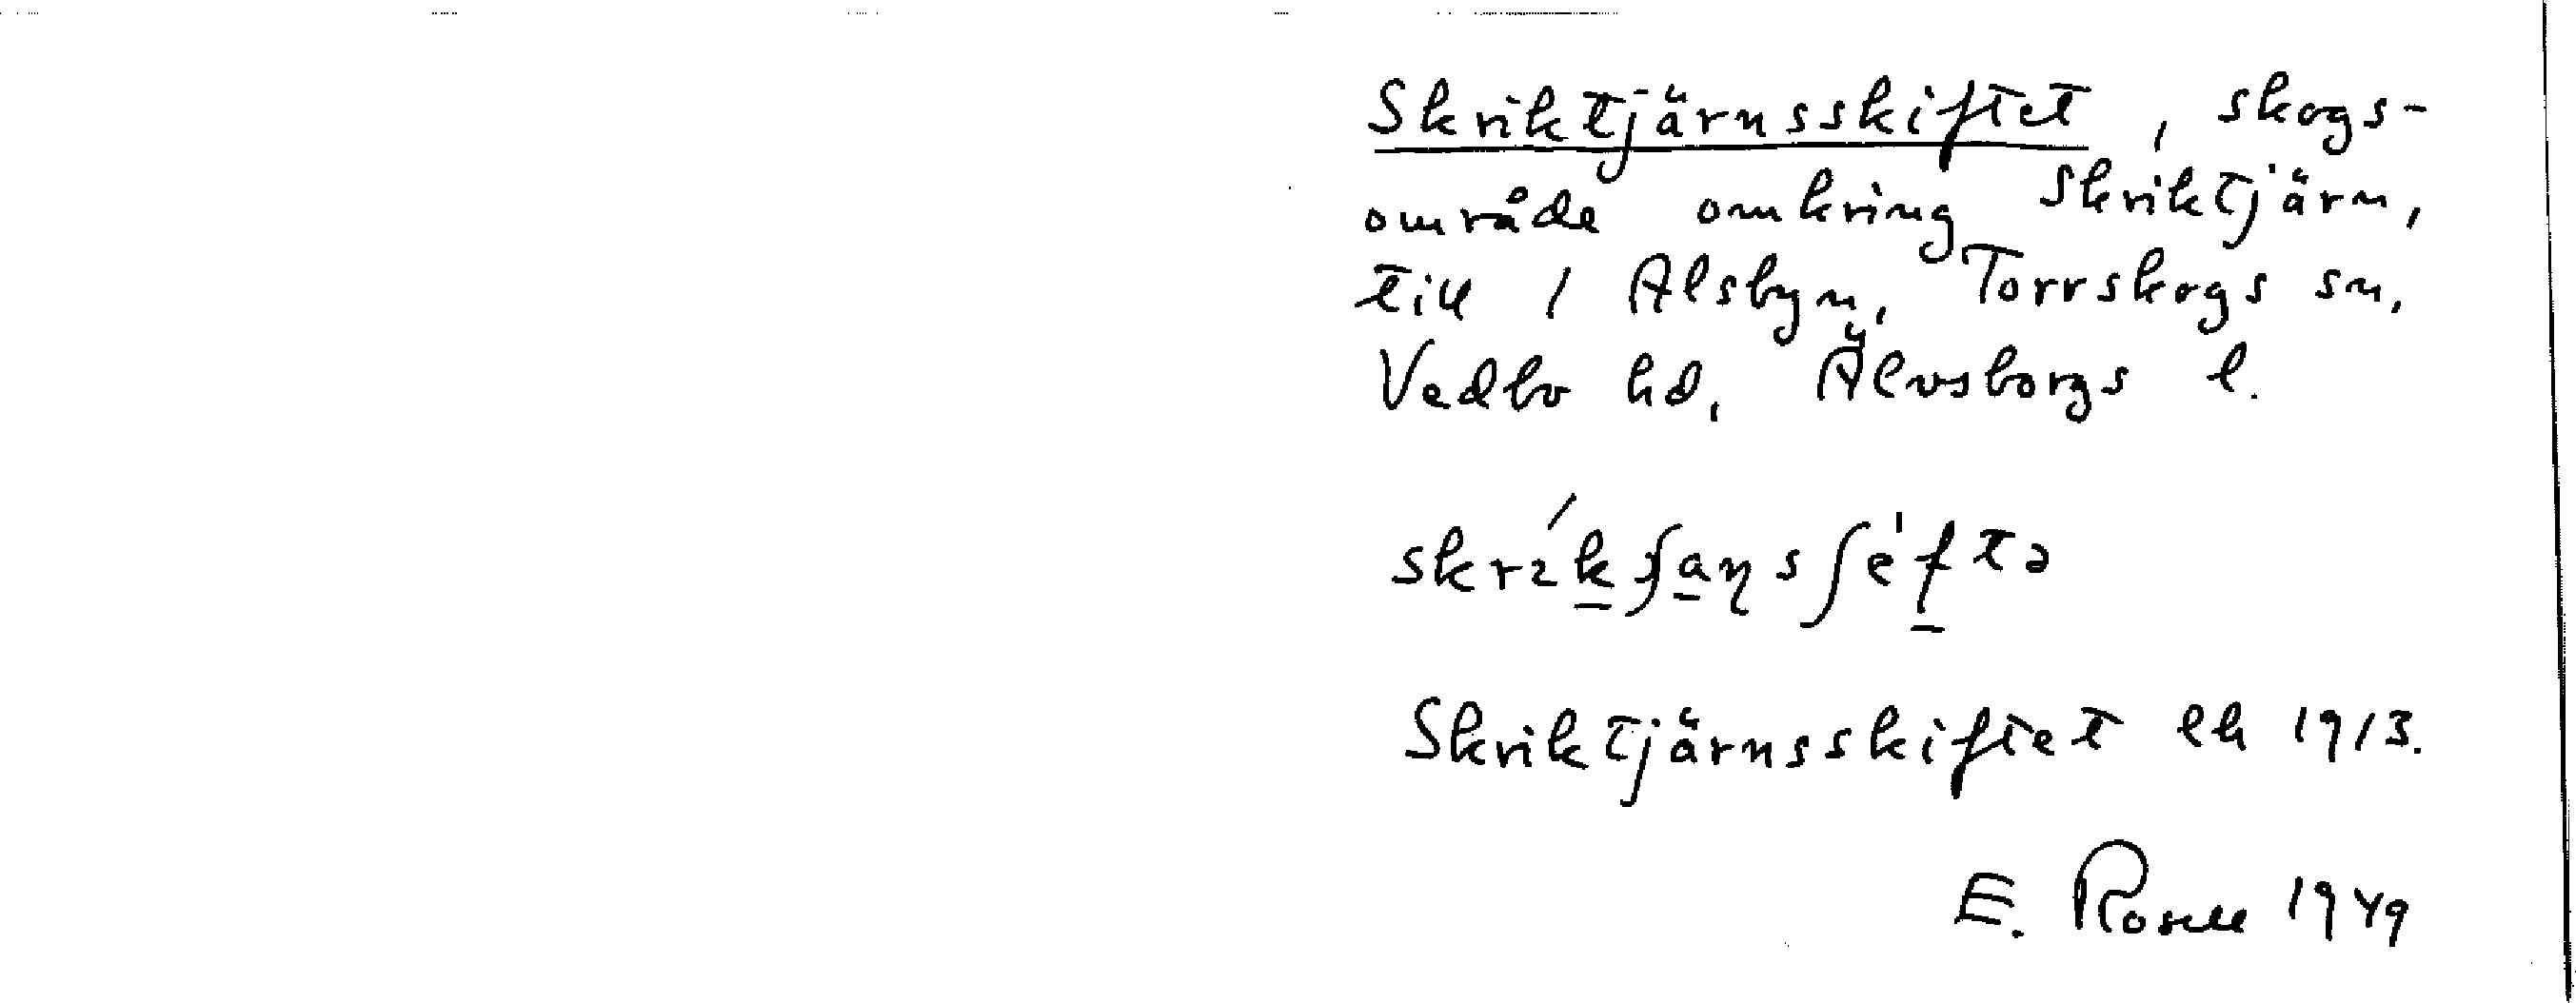 Skriktjärnsskiftet, skogs-
område omkring Skriktjärn,
till 1 Alsbyn, Torrskogs sn,
Vedbo hd, Älvsborgs l.
Skriktjärnsskiftet lh 1913.
E. Rosell 1949